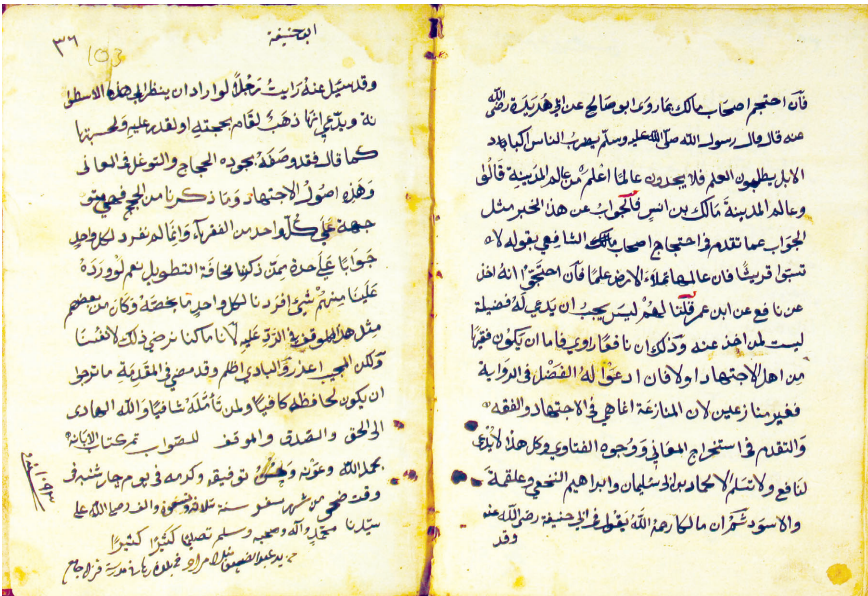 فان احتجم اصحاب مالك بما روى ابو صالح عن ابي هريرة رضي الله
عنه قال قال رسول الله صلى الله عليه وسلم يضرب الناس اكباد
الابل يطلبون العلم فلا يجدون عالما اعلم من عالم المدينة قالوا
وعالم المدينة مالك بن انس فالجواب عن هذا الخبر مثل
الجواب عما تقدم في احتجاج اصحاب الشافعي بقوله لا
تسبوا قريشا فان عالمها يملاء الارض علما فان احتجوا انه اخذ
عن نافع عن ابن عمر قلنا لهم ليس يجب ان يدعي له فضيلة
ليست لمن اخذ عنه وذلك ان نافعا راوي فاما ان يكون فقيها
من اهل الاجتهاد اولا فان ادعوا له الفضل في الرواية
فغير منازعين لان المنازعة انما هي في الاجتهاد والفقه
والتقدم في استخراج المعاني ووجوه الفتاوي وكل هذا لا يدعى
لنافع ولا تسلم الا لحماد بن ابي سليمان وابراهيم النخعي وعلقمة
والاسود ثم ان مالكا رحمه الله يقول في ابي حنيفة رضي الله عنه
وقد
ابو حنيفة
٣٦
103
وقد سئل عنه رايت رجلا لو اراد ان ينظر الى هذه الاسطوا
نة ويدعي انها ذهب لقام بحجته او لقدر عليه
كما قال فقد وصفه بجودة الحجاج والتوغل في المعاني
وهذه اصول الاجتهاد وما ذكرنا من الحجج فهي متو
جهة على كل واحد من الفقراء وانما لم نفرد لكل واحد
جوابا على حدة ممن ذكرنا مخافة التطويل نعم لو وردة
علينا منهم شئ افردنا لكل واحد ما يخصه وكان من بعضهم
مثل هذا الموقف في الرد عليه لانا ما كنا نرضي ذلك لانفسنا
ولكن المجي اعذر والبادي اظلم وقد مضى في المقدمة ما نرجوا
ان يكون لحافظه كافيا ولمن تأمله شافيا والله الهادى
الى الحق والصدق والموفق للصواب تم كتاب الابانة
بحمد الله وعونه توفيقه وكرمه في يوم چارشنبه في
وقت ضحى من شهر سنة ثلاثة والف صلى الله على
سيدنا محمد وآله وصحبه وسلم تصليما كثيرا كثيرا